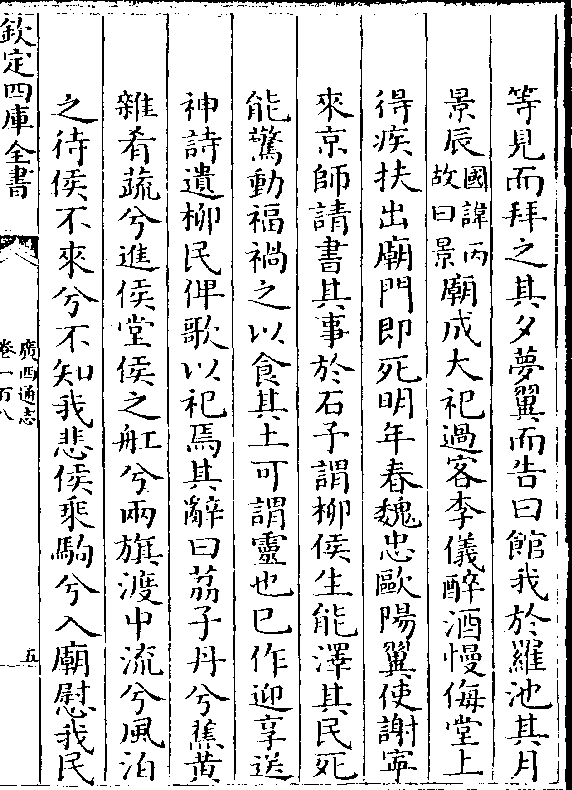 等見而拜之其夕夢翼而告曰館我於羅池其月
景辰國諱丙故曰景廟成大祀過客李儀醉酒慢侮堂上
得疾扶出廟門即死明年春魏忠歐陽翼使謝寧
來京師請書其事於石予謂柳侯生能澤其民死
能驚動福禍之以食其土可謂靈也已作迎享送
神詩遺柳民俾歌以祀焉其辭曰荔子丹兮蕉黄
雜肴蔬兮進侯堂侯之舡兮兩旗渡中流兮風泊
之待侯不來兮不知我悲侯乘駒兮入廟慰我民
欽定四庫全書
廣西通志
卷一百八
五